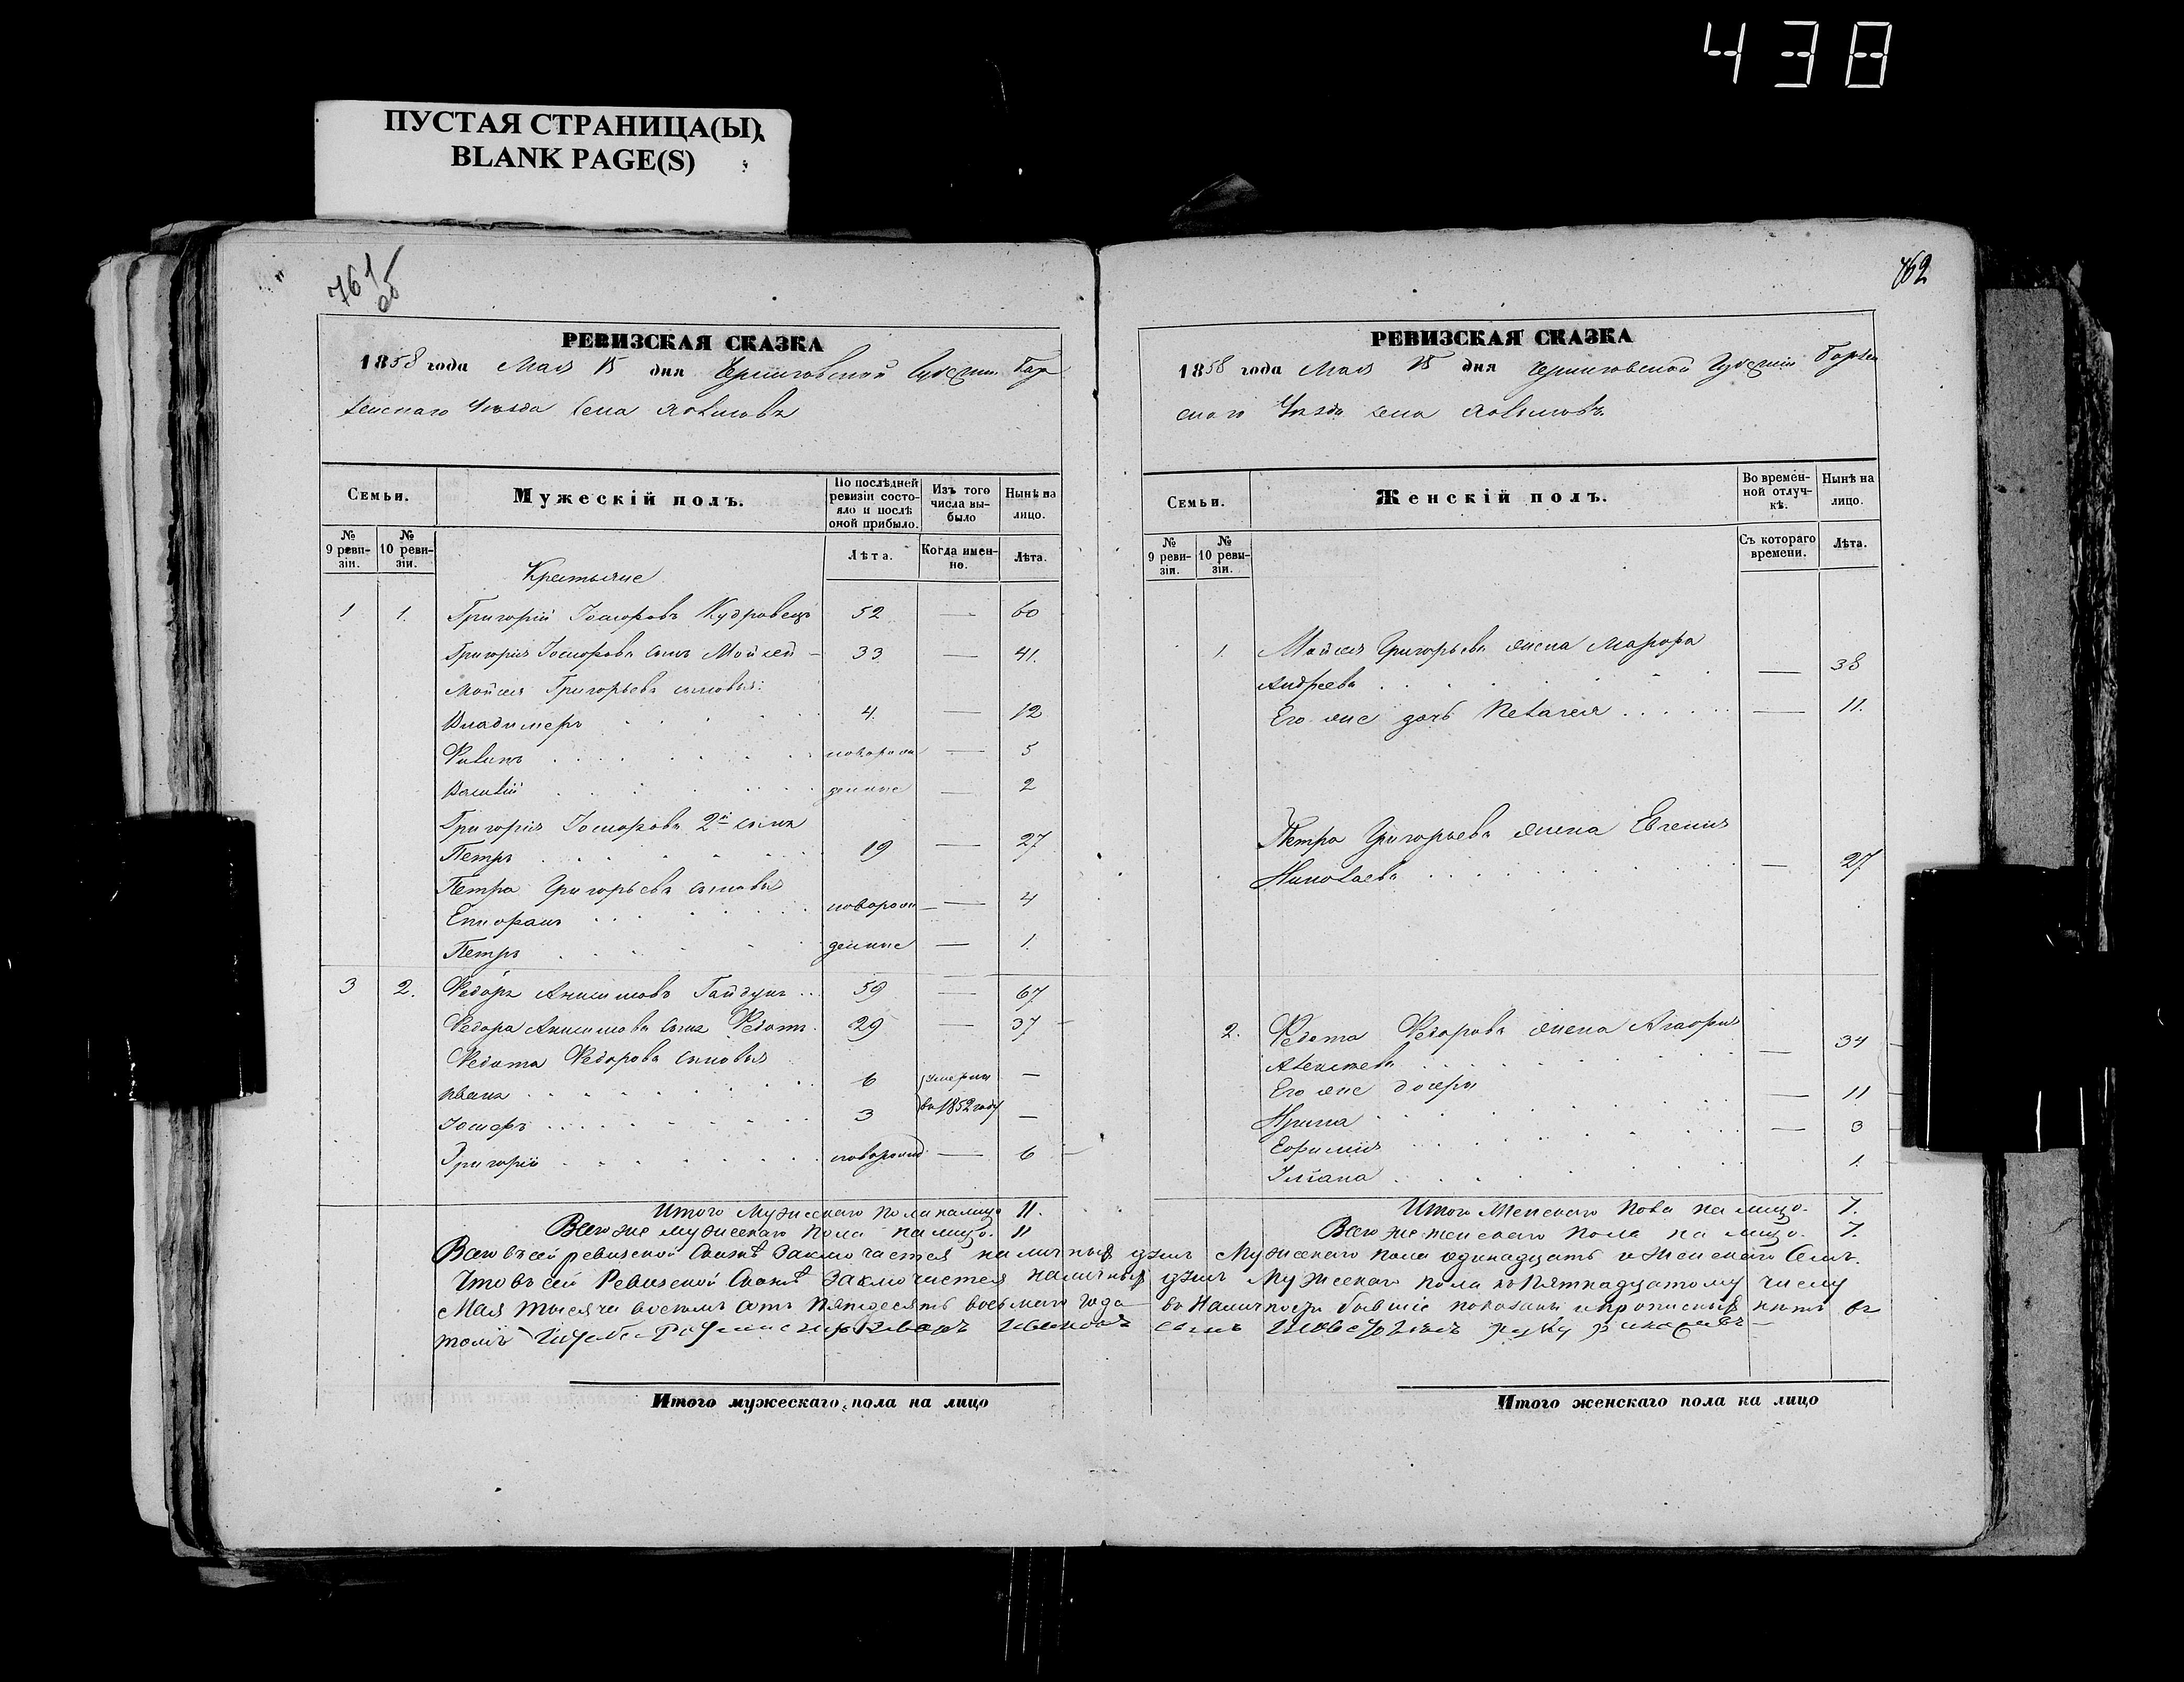 438
ПУСТАЯ СТРАНИЦА(Ы)
BLANK PAGE(S)
761
об
РЕВИЗСКАЯ СКАЗКА
1858 года Мая 15 дня Черниговской Губернии Бор
зенскаго Уезда села
Семьи.
Мужескій полъ.
По послѣдней ревизіи состояло и послѣ оной прибыло.
Изъ того числа выбыло
Нынѣ на лицо.
№ 9 ревизіи.
№ 10 ревизіи.
Лѣта.
Когда именно.
Лѣта.
Крестьяне
1 1. Григорій Іосифовъ Кудровецъ 52 — 60
Григорія Іосифова сынъ Мойсей — 33 — 41.
Мойсея Григорьева сыновья:
Владимеръ 4. — 12
Филипъ новорож — 5
Василій денные — 2
Григорія Іосифова 2й сынъ
Петръ 19 — 27
Петра Григорьева сыновья
новорож — 4
Петръ денные — 1.
3 2. Федоръ Анисимовъ Гайдукъ 59 — 67
Федора Анисимова сынъ Федотъ 29 — 37
Федота Федорова сыновья
Иванъ 6 умерли —
Іосифъ 3 въ 1852 году —
Григорій новорожд — 6
Итого Мужескаго пола налицо 11.
Всего же мужескаго пола на лицо. 11
Итого мужескаго пола на лицо
762
РЕВИЗСКАЯ СКАЗКА
1858 года Мая 15 дня Черниговской Губерніи Борзен
скаго Уезда села
Семьи.
Женскій полъ.
Во временной отлучкѣ.
Нынѣ на лицо.
№ 9 ревизіи.
№ 10 ревизіи.
Съ котораго времени.
Лѣта.
1. Мойсея Григорьева жена Марфа
Андреева — 38
Его же дочь Пелагея — 11.
Петра Григорьева жена Евгенія
Николаева — 27
2. Федота Федорова жена Агафія
Алексеева — 34
Его же дочери
Ирина — 11
Ефимія — 3
Ульяна 1.
Итого Женскаго пола на лицо. 7.
Всего же женскаго пола на лицо. 7.
Всего въ сей ревизской Сказкѣ заключается наличныхъ душъ Мужескаго пола одинадцать и Женскаго Семь.
Что въ сей Ревизской Сказкѣ заключается наличныхъ душъ Мужескаго пола къ Пятнадцатому числу
Мая тысяча восемь сотъ пятдесятъ восьмаго года въ Наличности бывшіе показаны и прописныхъ нѣтъ въ
томъ руку
Итого женскаго пола на лицо